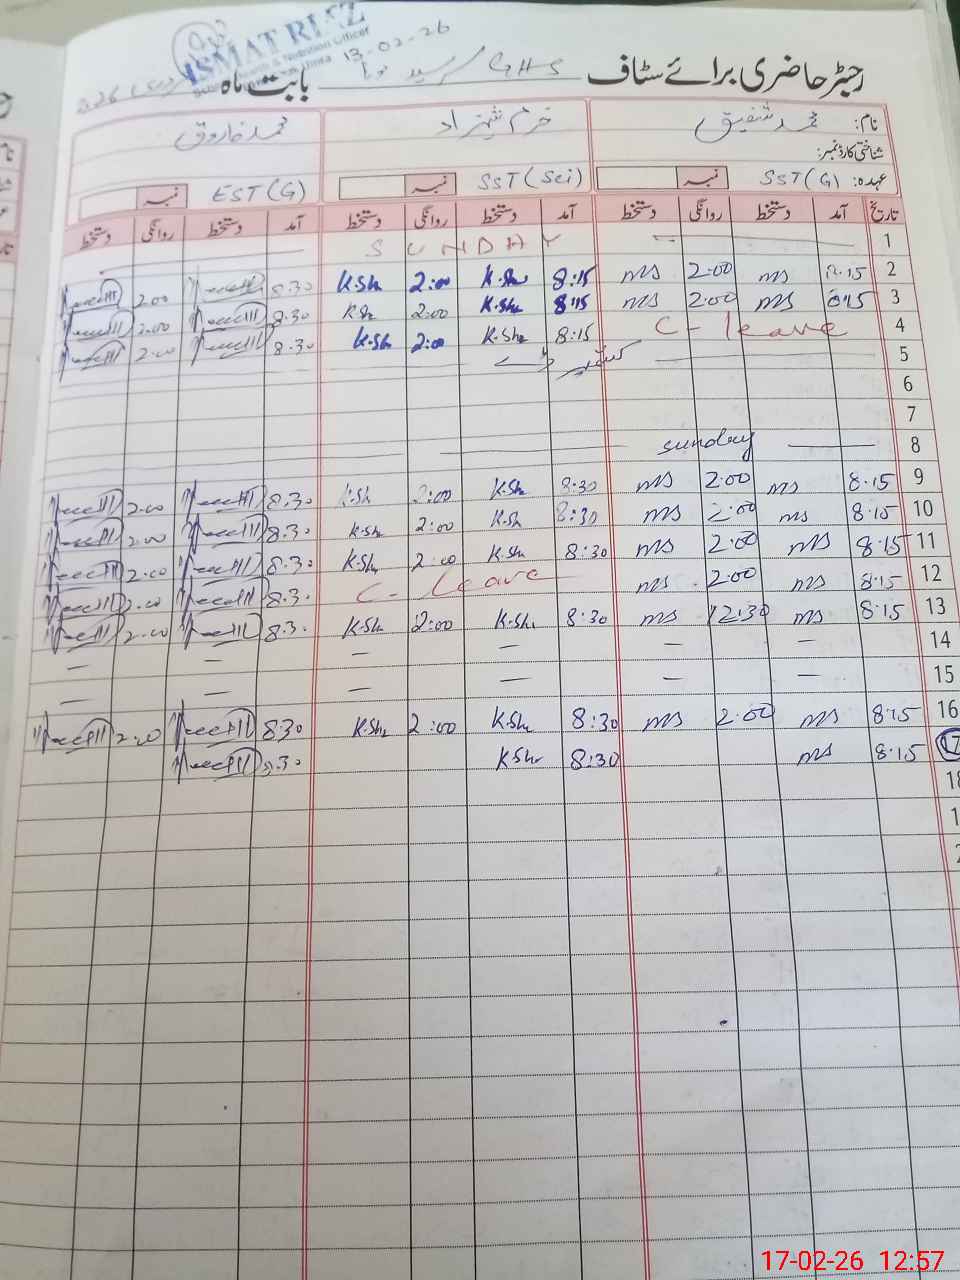 ISMAT RIAZ
13-02-26
رجسٹر حاضری برائے سٹاف GHS بابت ماہ 2026
نام: محمد شفیق خرم شہزاد محمد فاروق
شناختی کارڈ نمبر:
عہدہ: SST (G) نمبر SST (Sci) نمبر EST (G) نمبر
تاریخ آمد دستخط روانگی دستخط آمد دستخط روانگی دستخط آمد دستخط روانگی دستخط
1 SUNDAY
2 8:15 ms 2:00 ms 8:15 K.Sh 2:00 K.Sh 8:30 2:00
3 8:15 ms 2:00 ms 8:15 K.Sh 2:00 K.Sh 8:30 2:00
4 C-leave 8:15 K.Sh 2:00 K.Sh 8:30 2:00
5 کشمیر ڈے
6
7
8 sunday
9 8:15 ms 2:00 ms 8:30 K.Sh 2:00 K.Sh 8:30 2:00
10 8:15 ms 2:00 ms 8:30 K.Sh 2:00 K.Sh 8:30 2:00
11 8:15 ms 2:00 ms 8:30 K.Sh 2:00 K.Sh 8:30 2:00
12 8:15 ms 2:00 ms C-leave 8:30 2:00
13 8:15 ms 12:30 ms 8:30 K.Sh 2:00 K.Sh 8:30 2:00
14 — — — — — —
15 — — — — — —
16 8:15 ms 2:00 ms 8:30 K.Sh 2:00 K.Sh 8:30 2:00
17 8:15 ms 8:30 K.Sh 8:30
18
17-02-26 12:57